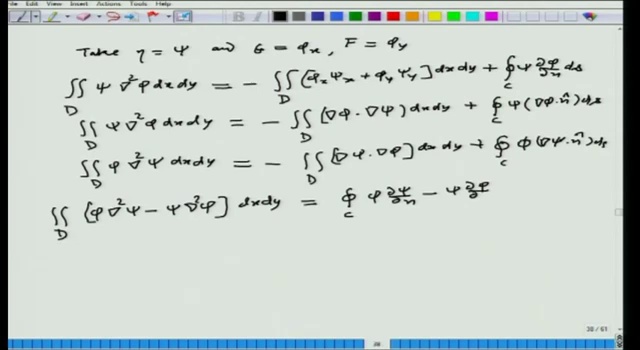 File Edit View Insert Actions Tools Help
Take η = ψ and G = φₓ, F = φᵧ
∬_D ψ ∇²φ dxdy = - ∬_D [φₓψₓ + φᵧψᵧ] dxdy + ∮_C ψ ∂φ/∂n ds
∬_D ψ ∇²φ dxdy = - ∬_D (∇φ · ∇ψ) dxdy + ∮_C ψ (∇φ · n̂) ds
∬_D φ ∇²ψ dxdy = - ∬_D [∇ψ · ∇φ] dxdy + ∮_C φ (∇ψ · n̂) ds
∬_D [φ∇²ψ - ψ∇²φ] dxdy = ∮_C φ ∂ψ/∂n - ψ ∂φ/∂
38 / 61
38